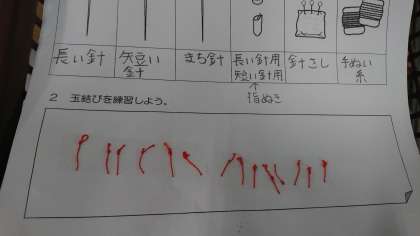 長い針 短い針 まち針 長い針用 短い針用 針さし 手ぬい糸
↑
指ぬき
2 玉結びを練習しよう。